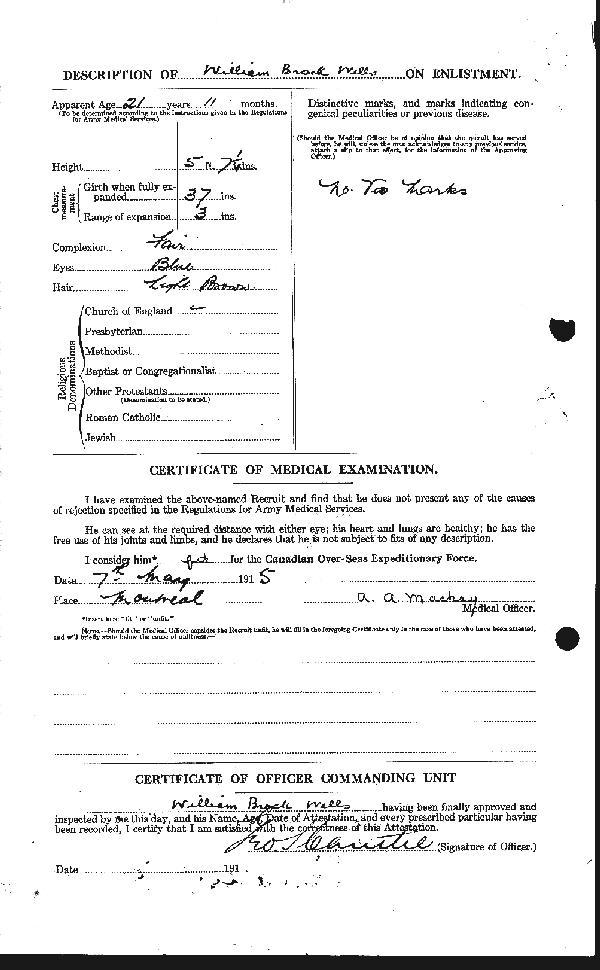 DESCRIPTION OF William Brock Wells ON ENLISTMENT.
Apparent Age 21 years 11 months.
(To be determined according to the instructions given in the Regulations for Army Medical Services.)
Height 5 ft. 7½ ins.
Chest measurement
Girth when fully expanded 37 ins.
Range of expansion 3 ins.
Complexion Fair
Eyes Blue
Hair Light Brown
Religious Denominations
Church of England
Presbyterian
Methodist
Baptist or Congregationalist
Other Protestants
(Denomination to be stated.)
Roman Catholic
Jewish
Distinctive marks, and marks indicating congenital peculiarities or previous disease.
(Should the Medical Officer be of opinion that the recruit has served before, he will, unless the man acknowledges to any previous service, attach a slip to that effect, for the information of the Approving Officer.)
No Marks
CERTIFICATE OF MEDICAL EXAMINATION.
I have examined the above-named Recruit and find that he does not present any of the causes
of rejection specified in the Regulations for Army Medical Services.
He can see at the required distance with either eye; his heart and lungs are healthy; he has the
free use of his joints and limbs, and he declares that he is not subject to fits of any description.
I consider him* fit for the Canadian Over-Seas Expeditionary Force.
Date 7th May 1915
Place Montreal A. A. Mackay
Medical Officer.
*Insert here "fit" or "unfit."
NOTE.—Should the Medical Officer consider the Recruit unfit, he will fill in the foregoing Certificate only in the case of those who have been attested,
and will briefly state below the cause of unfitness:—
CERTIFICATE OF OFFICER COMMANDING UNIT
William Brock Wells having been finally approved and
inspected by me this day, and his Name, Age, Date of Attestation, and every prescribed particular having
been recorded, I certify that I am satisfied with the correctness of this Attestation.
(Signature of Officer.)
Date 191